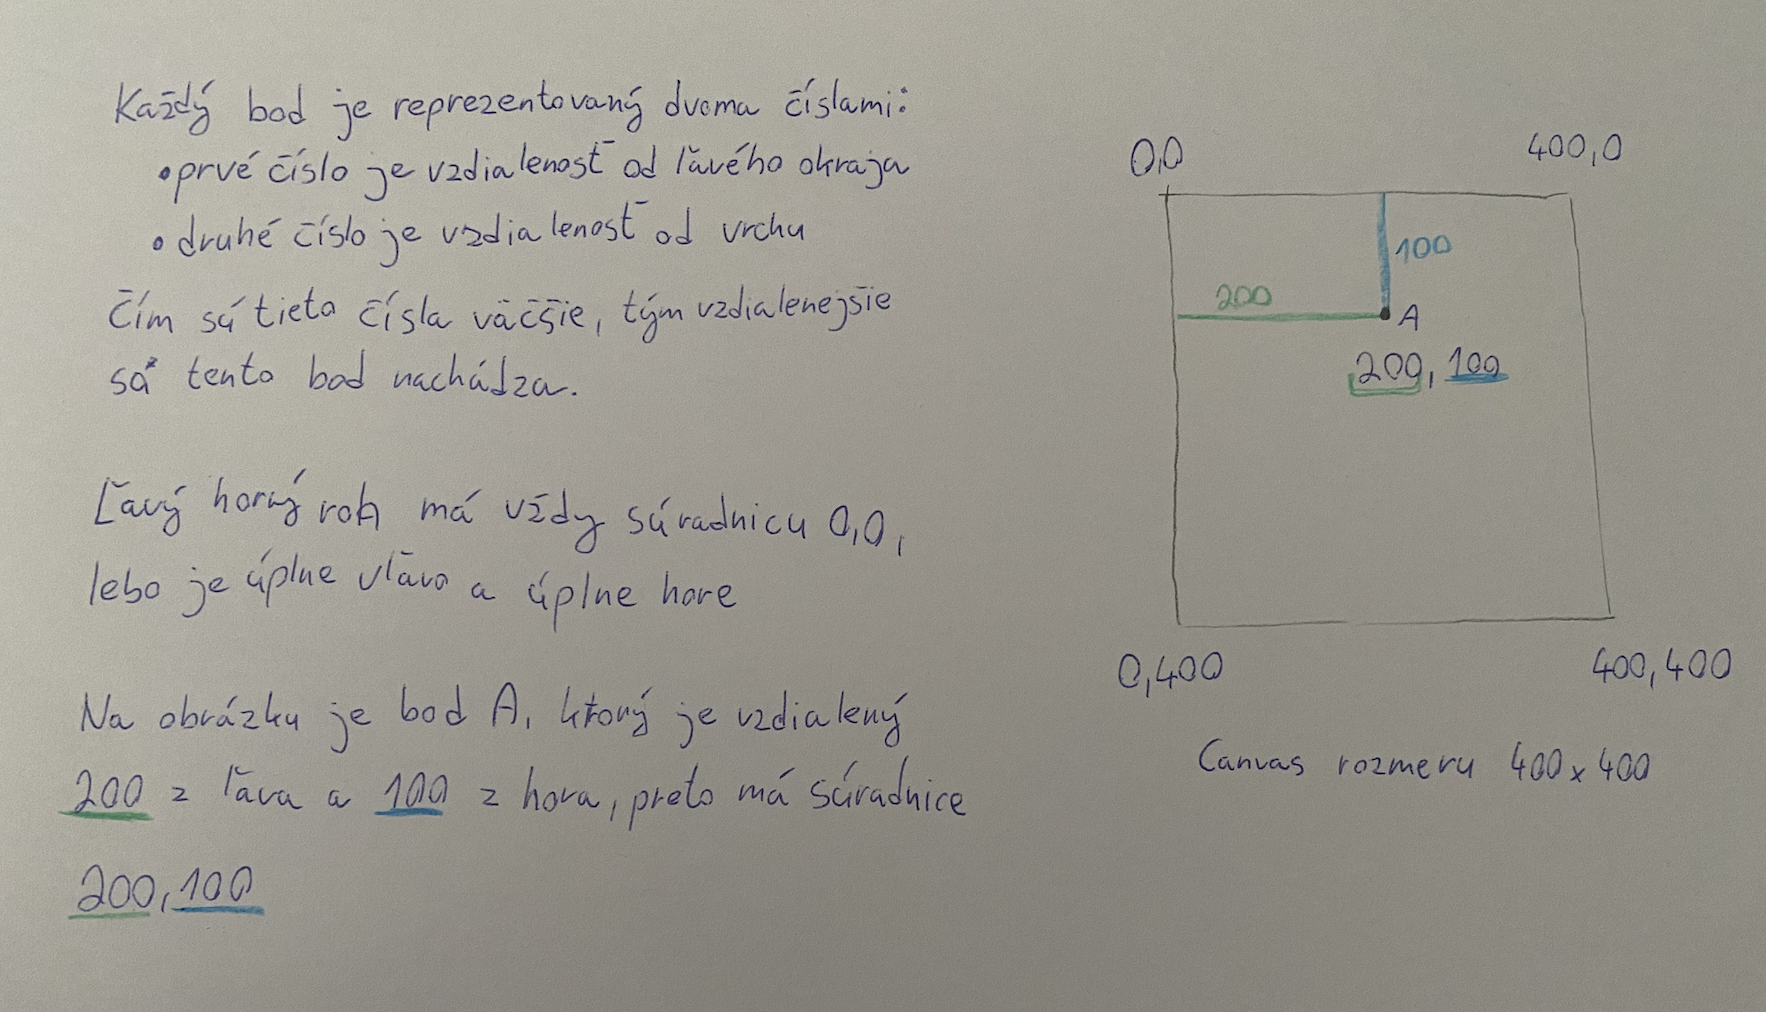 Každý bod je reprezentovaný dvoma číslami:
• prvé číslo je vzdialenosť od ľavého okraja
• druhé číslo je vzdialenosť od vrchu
Čím sú tieto čísla väčšie, tým vzdialenejšie
sa tento bod nachádza.
Ľavý horný roh má vždy súradnicu 0,0,
lebo je úplne vľavo a úplne hore
Na obrázku je bod A, ktorý je vzdialený
200 z ľava a 100 z hora, preto má súradnice
200,100
0,0
400,0
100
200
A
200, 100
0,400
400,400
Canvas rozmeru 400x400